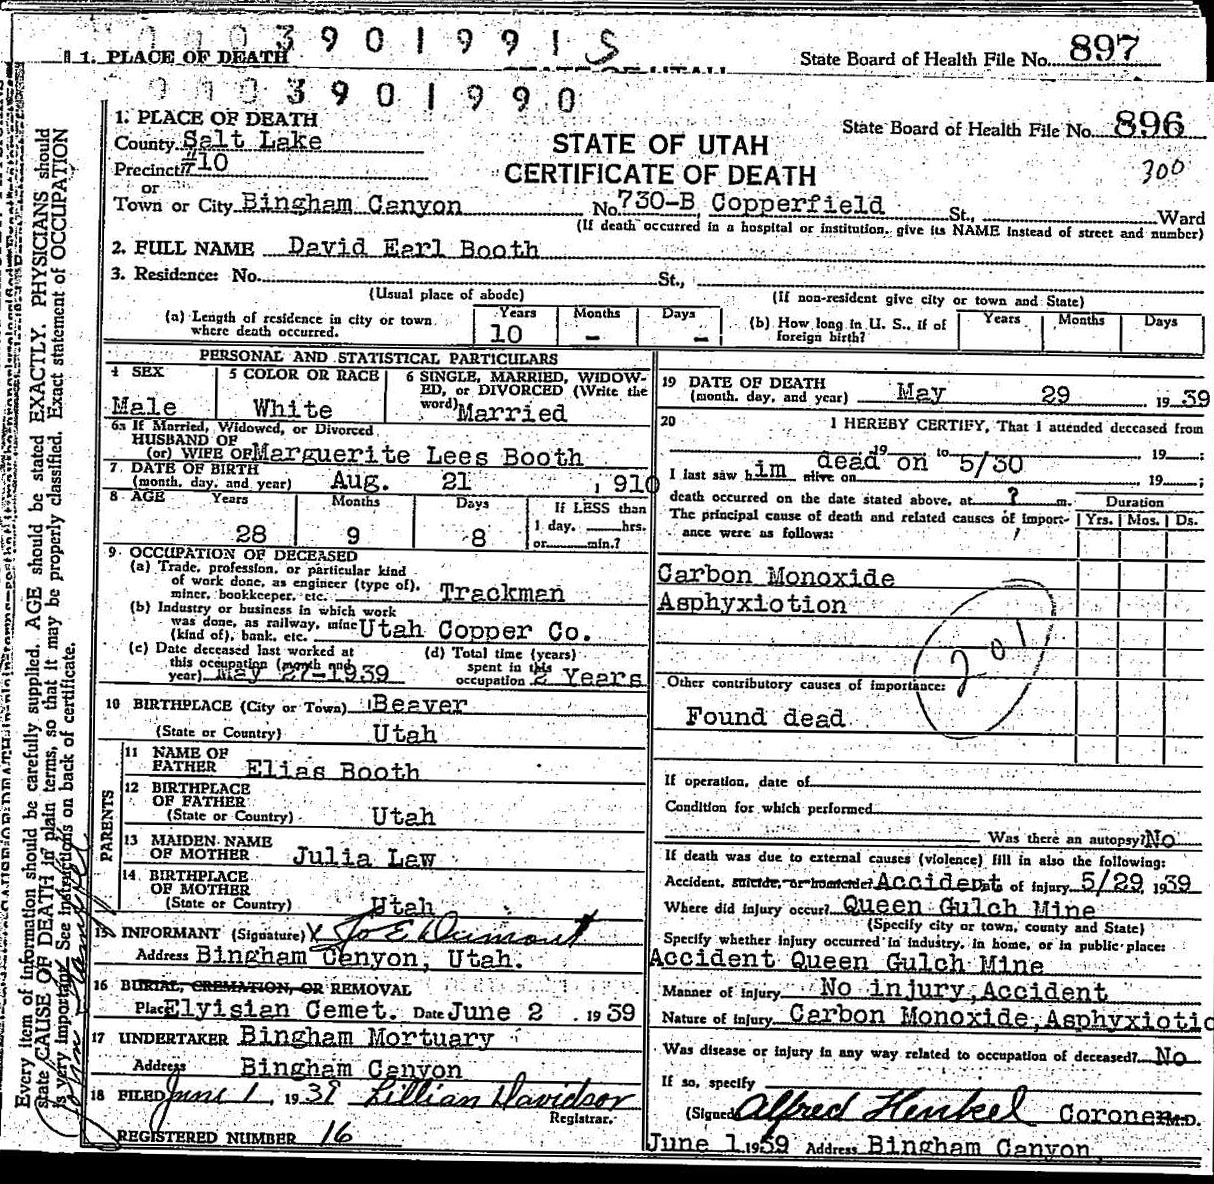 3901991 S
1. PLACE OF DEATH
State Board of Health File No. 897
3901990
1. PLACE OF DEATH
State Board of Health File No. 896
County Salt Lake
STATE OF UTAH
300
Precinct #10
CERTIFICATE OF DEATH
or
Town or City Bingham Canyon No. 730-B Copperfield St., Ward
(If death occurred in a hospital or institution, give its NAME instead of street and number)
2. FULL NAME David Earl Booth
3. Residence: No. St.,
(Usual place of abode) (If non-resident give city or town and State)
(a) Length of residence in city or town where death occurred. Years 10 Months - Days -
(b) How long in U. S., if of foreign birth? Years Months Days
PERSONAL AND STATISTICAL PARTICULARS
4 SEX Male
5 COLOR OR RACE White
6 SINGLE, MARRIED, WIDOWED, or DIVORCED (Write the word) Married
6a If Married, Widowed, or Divorced
HUSBAND OF
(or) WIFE OF Marguerite Lees Booth
7. DATE OF BIRTH
(month, day, and year) Aug. 21 , 1910
8 AGE Years 28 Months 9 Days 8
If LESS than
1 day, hrs.
or min.?
9 OCCUPATION OF DECEASED
(a) Trade, profession, or particular kind
of work done, as engineer (type of),
miner, bookkeeper, etc. Trackman
(b) Industry or business in which work
was done, as railway, mine
(kind of), bank, etc. Utah Copper Co.
(c) Date deceased last worked at
this occupation (month and
year) May 27-1939
(d) Total time (years)
spent in this
occupation 2 Years
10 BIRTHPLACE (City or Town) Beaver
(State or Country) Utah
PARENTS
11 NAME OF
FATHER Elias Booth
12 BIRTHPLACE
OF FATHER
(State or Country) Utah
13 MAIDEN NAME
OF MOTHER Julia Law
14 BIRTHPLACE
OF MOTHER
(State or Country) Utah
15 INFORMANT (Signature) X Jo E Dumont
Address Bingham Canyon, Utah.
16 BURIAL, CREMATION, OR REMOVAL
Place Elyisian Cemet. Date June 2 , 1939
17 UNDERTAKER Bingham Mortuary
Address Bingham Canyon
18 FILED June 1, 1939 Lillian Davidson
Registrar.
REGISTERED NUMBER 16
19 DATE OF DEATH
(month, day, and year) May 29 , 1939
20 I HEREBY CERTIFY, That I attended deceased from
, 19 to , 19 ;
I last saw him alive on dead on 5/30 , 19 ;
death occurred on the date stated above, at ? m.
Duration
The principal cause of death and related causes of importance were as follows:
Yrs. Mos. Ds.
Carbon Monoxide
Asphyxiotion
201
Other contributory causes of importance:
Found dead
If operation, date of
Condition for which performed
Was there an autopsy? No
If death was due to external causes (violence) fill in also the following:
Accident, suicide, or homicide? Accident Date of injury 5/29, 1939
Where did injury occur? Queen Gulch Mine
(Specify city or town, county and State)
Specify whether injury occurred in industry, in home, or in public place:
Accident Queen Gulch Mine
Manner of injury No injury, Accident
Nature of injury Carbon Monoxide, Asphyxiotio
Was disease or injury in any way related to occupation of deceased? No
If so, specify
(Signed) Alfred Henkel Coroner M.D.
June 1, 1939 Address Bingham Canyon,
Every item of information should be carefully supplied. AGE should be stated EXACTLY. PHYSICIANS should
state CAUSE OF DEATH in plain terms, so that it may be properly classified. Exact statement of OCCUPATION
is very important. See instructions on back of certificate.